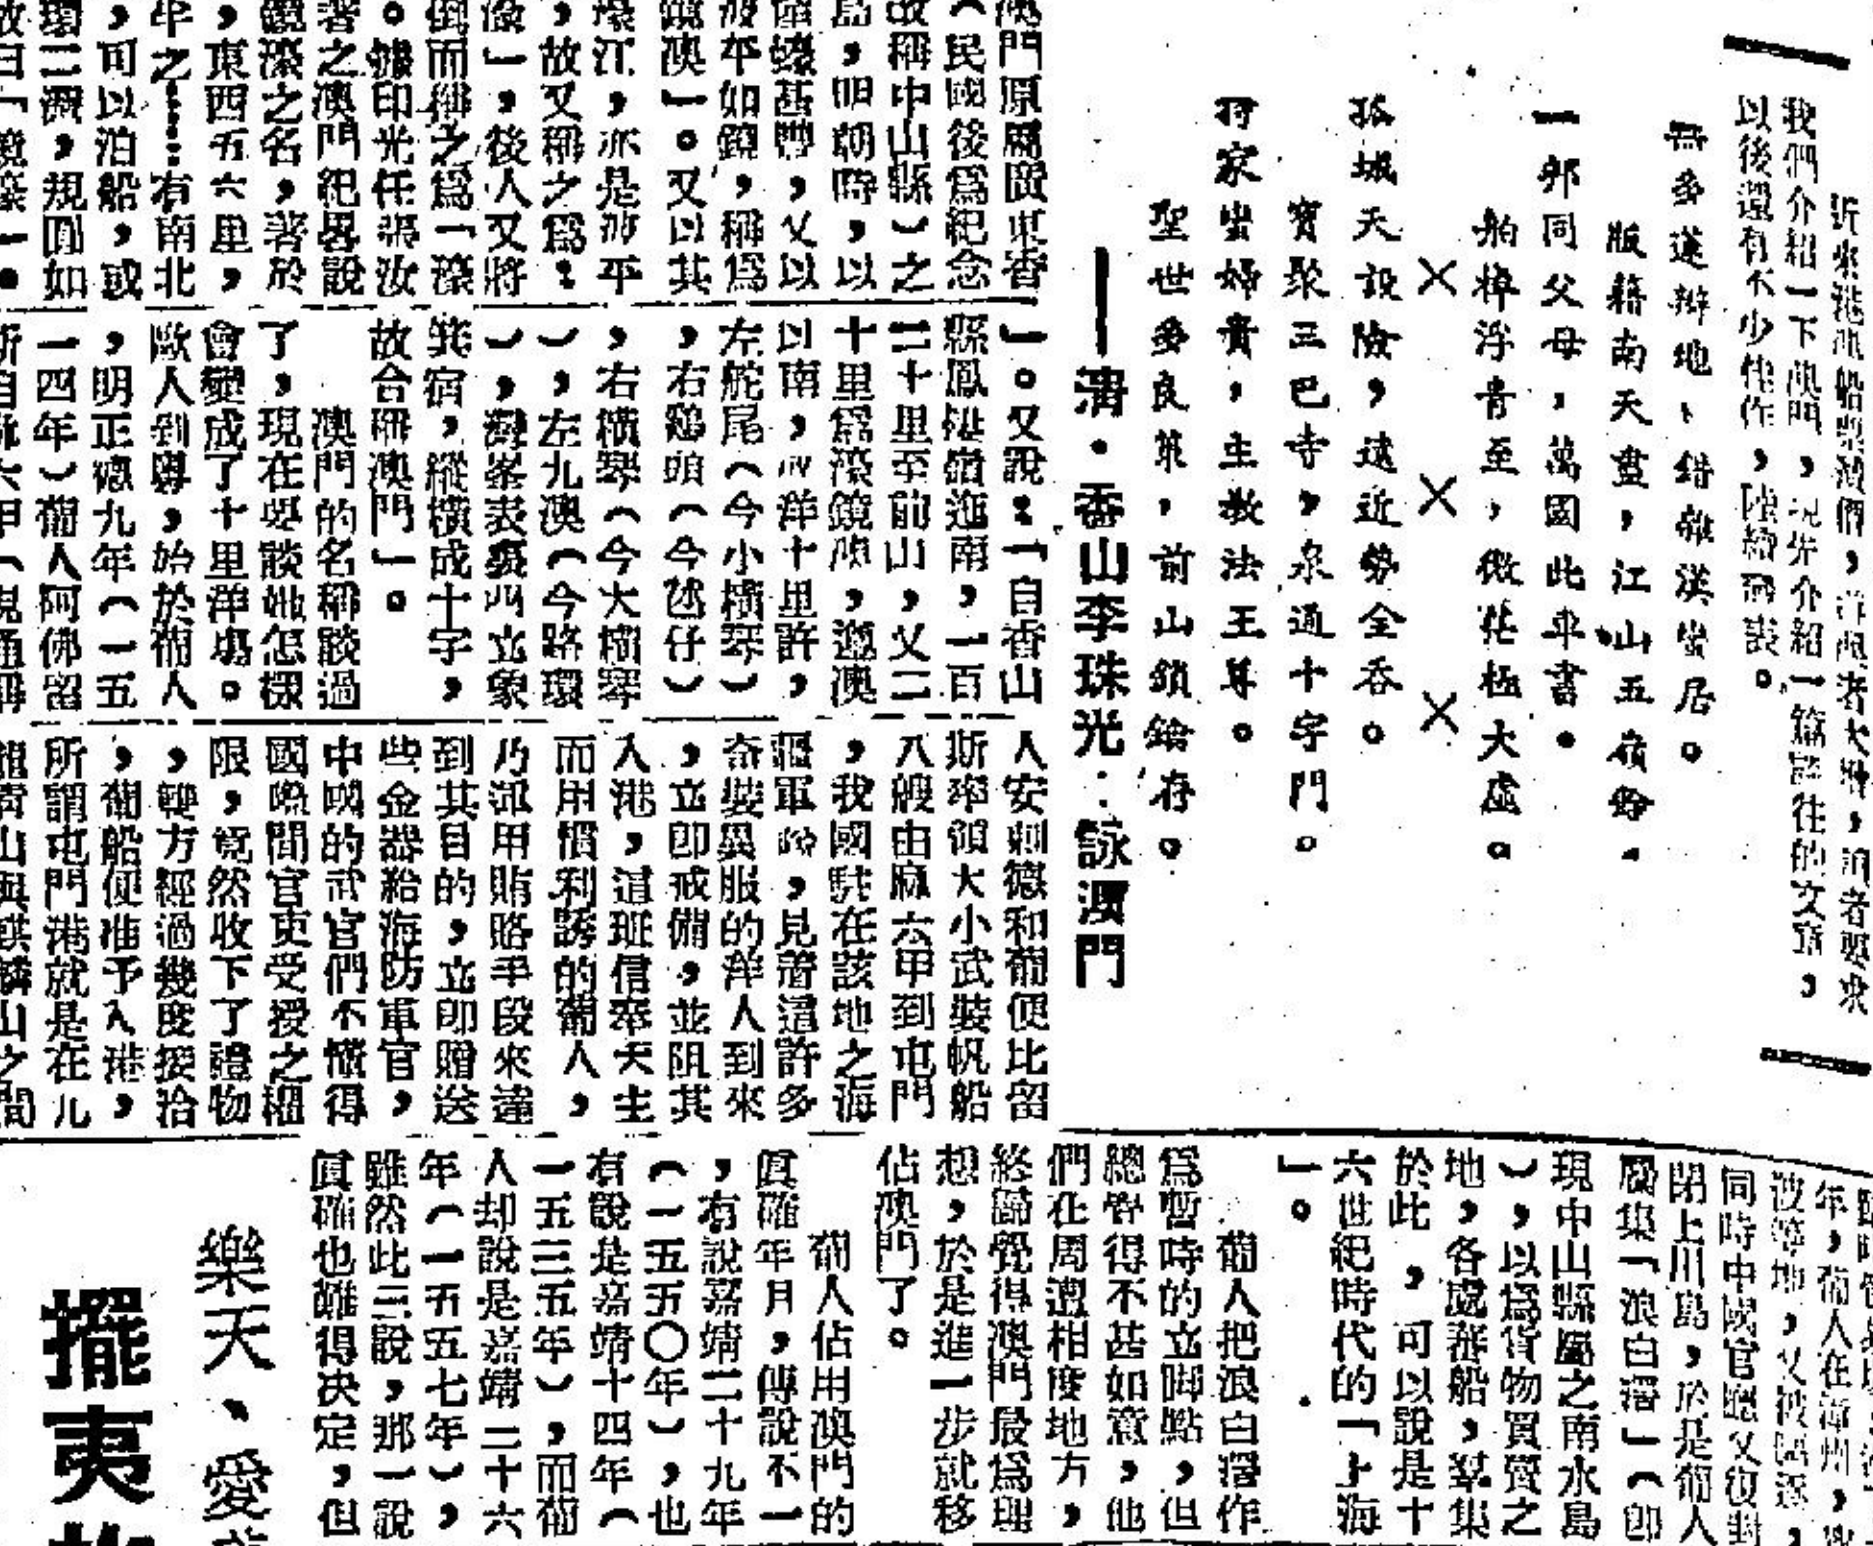 近來港澳船票漲價，
我們介紹一下澳門，現先介紹一篇
以後還有不少佳作，陸續刊表。
無多蓮瓣地，錯雜漢蠻居。
版籍南天盡，江山五嶺餘。
一邦同父母，萬國此車書。
舶棹浮青至，微茫極大虛。
×　×　×
孤城天設險，遠近勢全吞。
寶聚三巴寺，泉通十字門。
持家蠻婦貴，主教法王尊。
聖世多良策，前山鎖鑰存。
——清．香山李珠光：詠澳門
澳門原屬廣東香
（民國後爲紀念
故稱中山縣）之
島，明朝時，以
產蠔甚豐，又以
波平如鏡，稱爲
鏡澳」。又以其
濠江，亦是波平
，故又稱之爲：
濠」，後人又將
倒而稱之爲「濠
。據印光任張汝
著之澳門紀畧說
鏡濠之名，著於
，東西五六里，
年之……有南北
，可以泊船，或
環二灣，規圓如
故曰「鏡濠」。
」。又說：「自香山
縣鳳栖嶺迤南，一百
二十里至前山，又二
十里爲濠鏡澳，遞澳
以南，放洋十里許，
左舵尾（今小橫琴）
，右鷄頭（今氹仔）
，右橫琴（今大橫琴
），左九澳（今路環
），灣峯表裏四立象
箕宿，縱橫成十字，
故合稱澳門」。
澳門的名稱談過
了，現在要談她怎樣
會變成了十里洋場。
歐人到粵，始於葡人
，明正德九年（一五
一四年）葡人阿佛留
人安剌德和葡便比留
斯率領大小武裝帆船
八艘由麻六甲到屯門
，我國駐在該地之海
疆軍，見着這許多
奇裝異服的洋人到來
，立即戒備，並阻其
入港，這班信奉天主
而用慣利誘的葡人，
乃派用賄賂手段來達
到其目的，立即贈送
些金器給海防軍官，
中國的武官們不懂得
國際間官吏受授之權
限，竟然收下了禮物
，雙方經過幾度接洽
，葡船便准予入港，
所謂屯門港就是在九
龍青山與麒麟山之間
年，葡人在漳州，
被等地，又被驅逐，
同時中國官廳又復封
閉上川島，於是葡人
屬集「浪白滘」（卽
現中山縣屬之南水島
），以爲貨物買賣之
地，各處蕃船，羣集
於此，可以說是十
六世紀時代的「上海
」。
葡人把浪白滘作
爲暫時的立脚點，但
總督得不甚如意，他
們在周遭相度地方，
終歸覺得澳門最爲理
想，於是進一步就移
佔澳門了。
葡人佔用澳門的
眞確年月，傳說不一
，有說嘉靖二十九年
（一五五〇年），也
有說是嘉靖十四年（
一五三五年），而葡
人却說是嘉靖二十六
年（一五五七年），
雖然此三說，那一說
眞確也難得決定，但
樂天、愛
擺夷